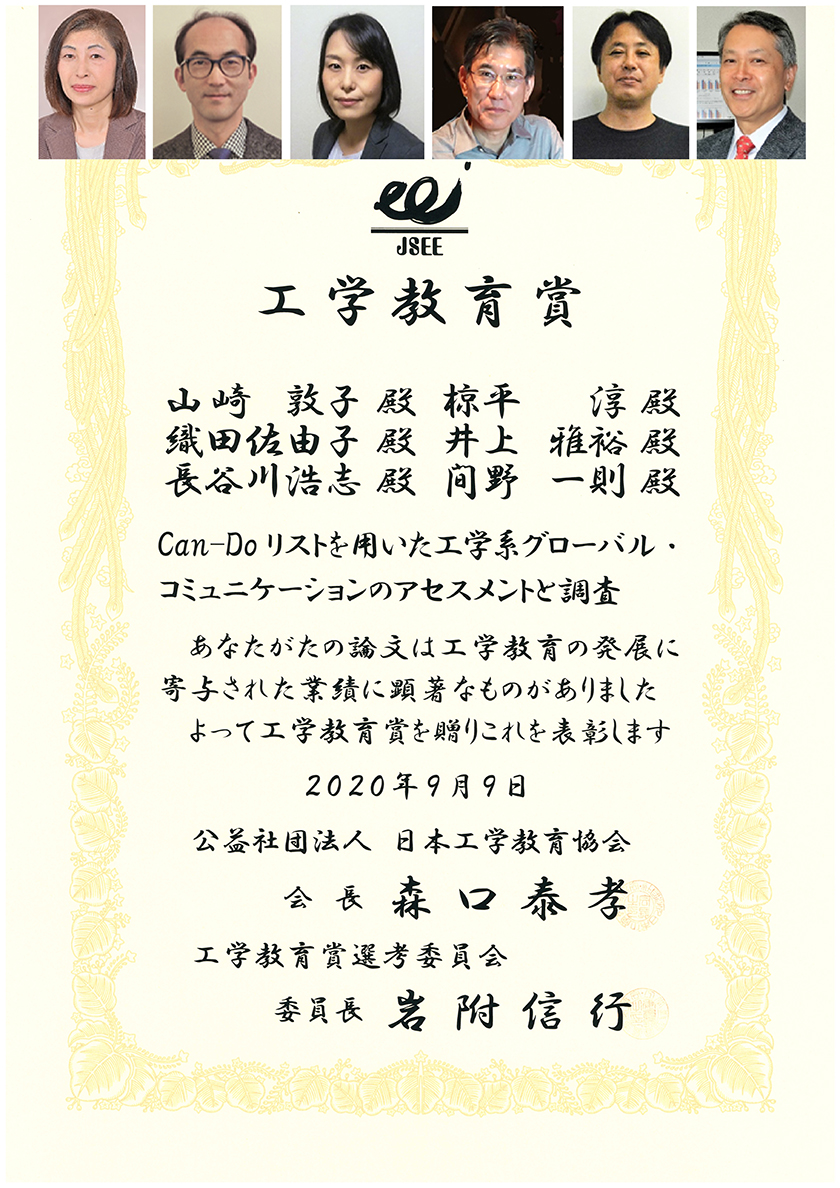 JSEE
工学教育賞
山崎 敦子 殿 椋平 淳 殿
織田佐由子 殿 井上 雅裕 殿
長谷川浩志 殿 間野 一則 殿
Can-Do リストを用いた工学系グローバル・
コミュニケーションのアセスメントと調査
あなたがたの論文は工学教育の発展に
寄与された業績に顕著なものがありました
よって工学教育賞を贈りこれを表彰します
2020年9月9日
公益社団法人 日本工学教育協会
会長 森口泰孝
工学教育賞選考委員会
委員長 岩附信行